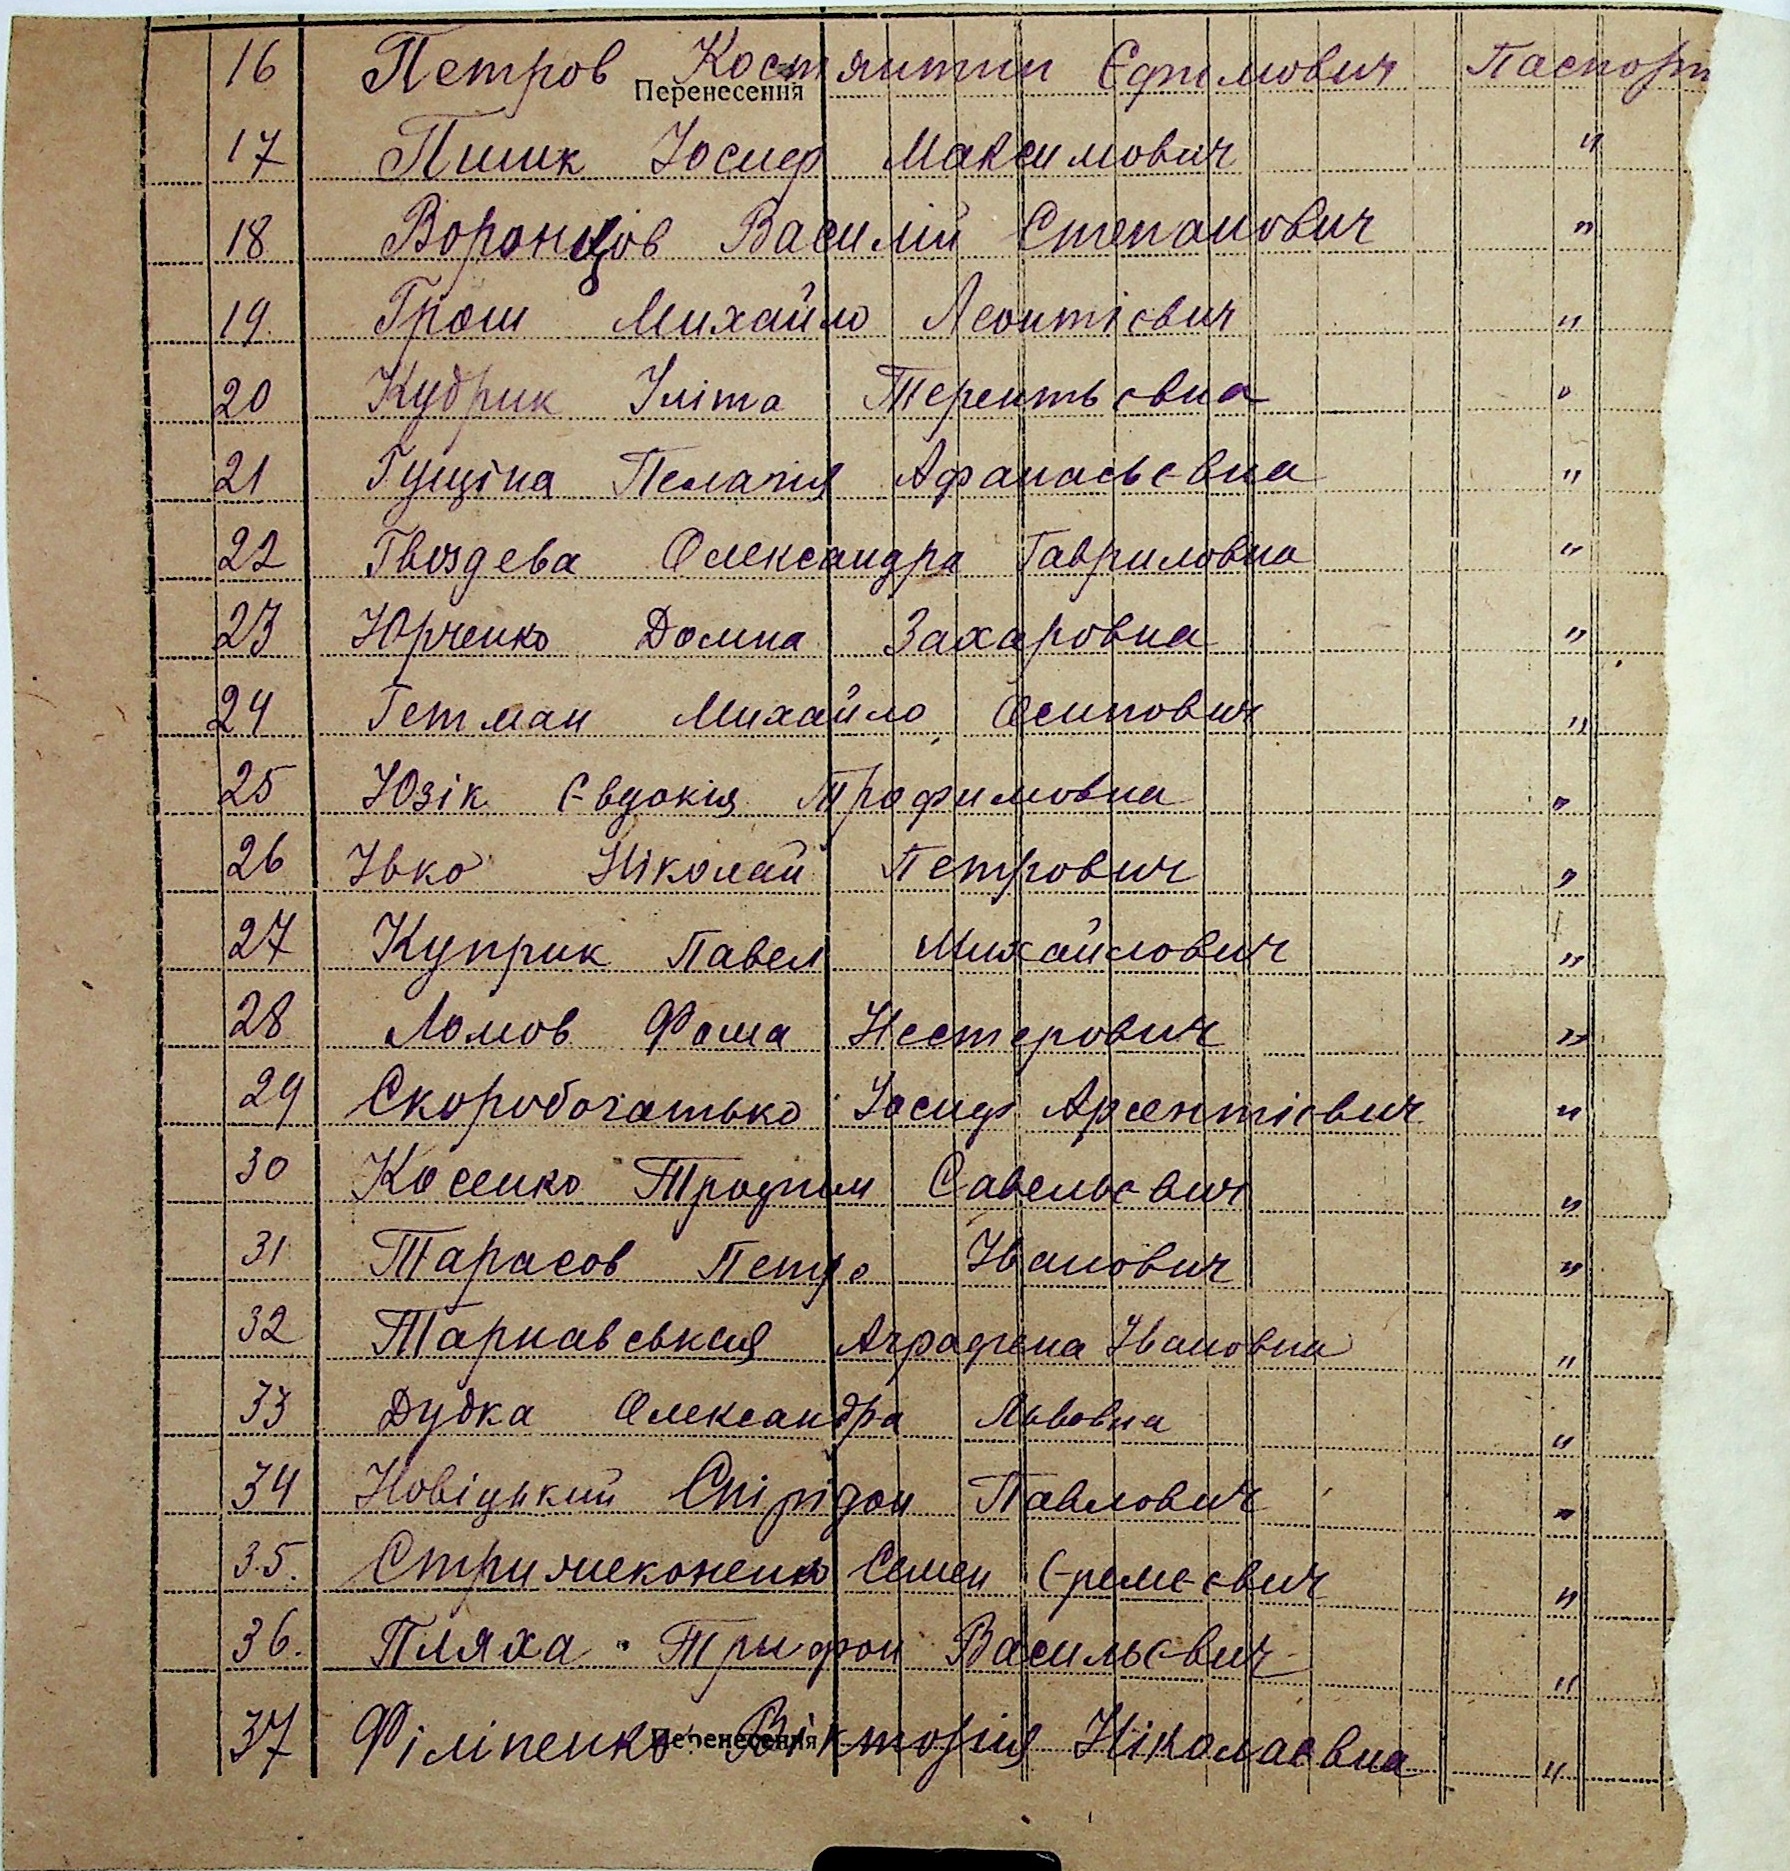 16 Петров Костянтин Єфимович Паспорт
Перенесення
17 Пшик Йосиф Максимович "
18 Воронцов Василій Степанович "
19. Грош Михайло Леонтієвич "
20 Кудрик Уліта Терентьєвна "
21 Гущіна Пелагія Афанасьєвна "
22 Гвоздева Олександра Гавриловна "
23 Юрченко Домна Захаровна "
24 Гетман Михайло Осипович "
25 Юзік Євдокія Трофимовна "
26 Ивко Ніколай Петрович "
27 Куприк Павел Михайлович "
28 Ломов Фома Нестерович "
29 Скоробогатько Йосиф Арсентієвич "
30 Косенко Трофим Савельєвич "
31 Тарасов Петро Иванович "
32 Тарнавськия Аграфена Ивановна "
33 Дудка Олександра Львовна "
34 Новіцький Спірідон Павлович "
35. Стримеконенко Семен Єремеєвич "
36. Пляха Трифон Васильєвич "
37 Філіпенко Вікторія Ніколаєвна "
Перенесення